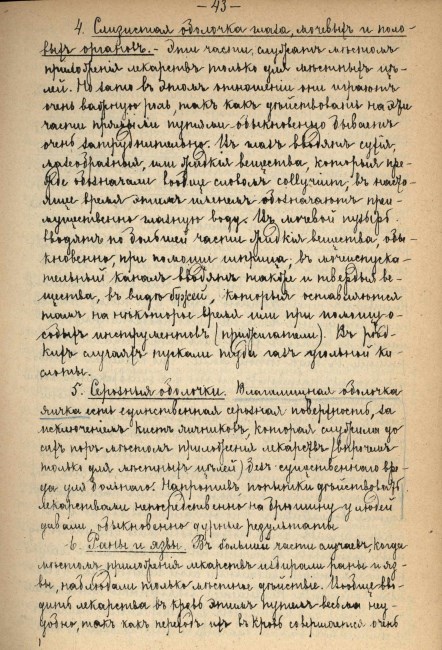 — 43 —
4. Слизистая оболочка глаза, мочевыхъ и поло-
выхъ органовъ. — Эти части служатъ мѣстомъ
приложенія лекарствъ только для мѣстныхъ цѣ-
лей. Но зато въ этомъ отношеніи они играютъ
очень важную роль, такъ какъ дѣйствовать на эти
части прямыми путями обыкновенно бываетъ
очень затруднительно. Въ глазъ вводятъ сухія,
мазеобразныя, или жидкія вещества, которыя пре-
жде обозначали вообще словомъ collyrium, въ насто-
ящее время этимъ именемъ обозначаютъ преи-
мущественно глазную воду. Въ мочевой пузырь
вводятъ по большей части жидкія вещества, обы-
кновенно, при помощи шприца; въ мочеиспуска-
тельный каналъ вводятъ также и твердыя ве-
щества, въ видѣ бужей, которыя оставляются
тамъ на нѣкоторое время или при помощи о-
собыхъ инструментовъ (прижигатели). Въ рѣд-
кихъ случаяхъ пускали туда газъ угольной ки-
слоты.
5. Серозныя оболочки. Влагалищная оболочка
яичка есть единственная серозная поверхность, за
исключеніемъ кистъ яичниковъ, которая служила до
сихъ поръ мѣстомъ приложенія лекарствъ (впрочемъ
только для мѣстныхъ цѣлей) безъ существеннаго вре-
да для больного. Напротивъ попытки дѣйствовать
лекарствами непосредственно на брюшину у людей
давали, обыкновенно дурные результаты.
6. Раны и язвы. Въ большей части случаевъ, когда
мѣстомъ приложенія лекарствъ избирали раны и яз-
вы, наблюдали только мѣстное дѣйствіе. Вообще вво-
дить лекарства въ кровь этимъ путемъ весьма неу-
добно, такъ какъ переходъ ихъ въ кровь совершается очень